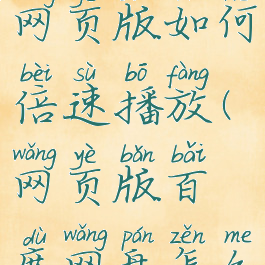 网页版如何
bèi sù bō fàng
倍速播放(
wǎng yè bǎn bǎi
网页版百
dù wǎng pán zěn me
度网盘怎么